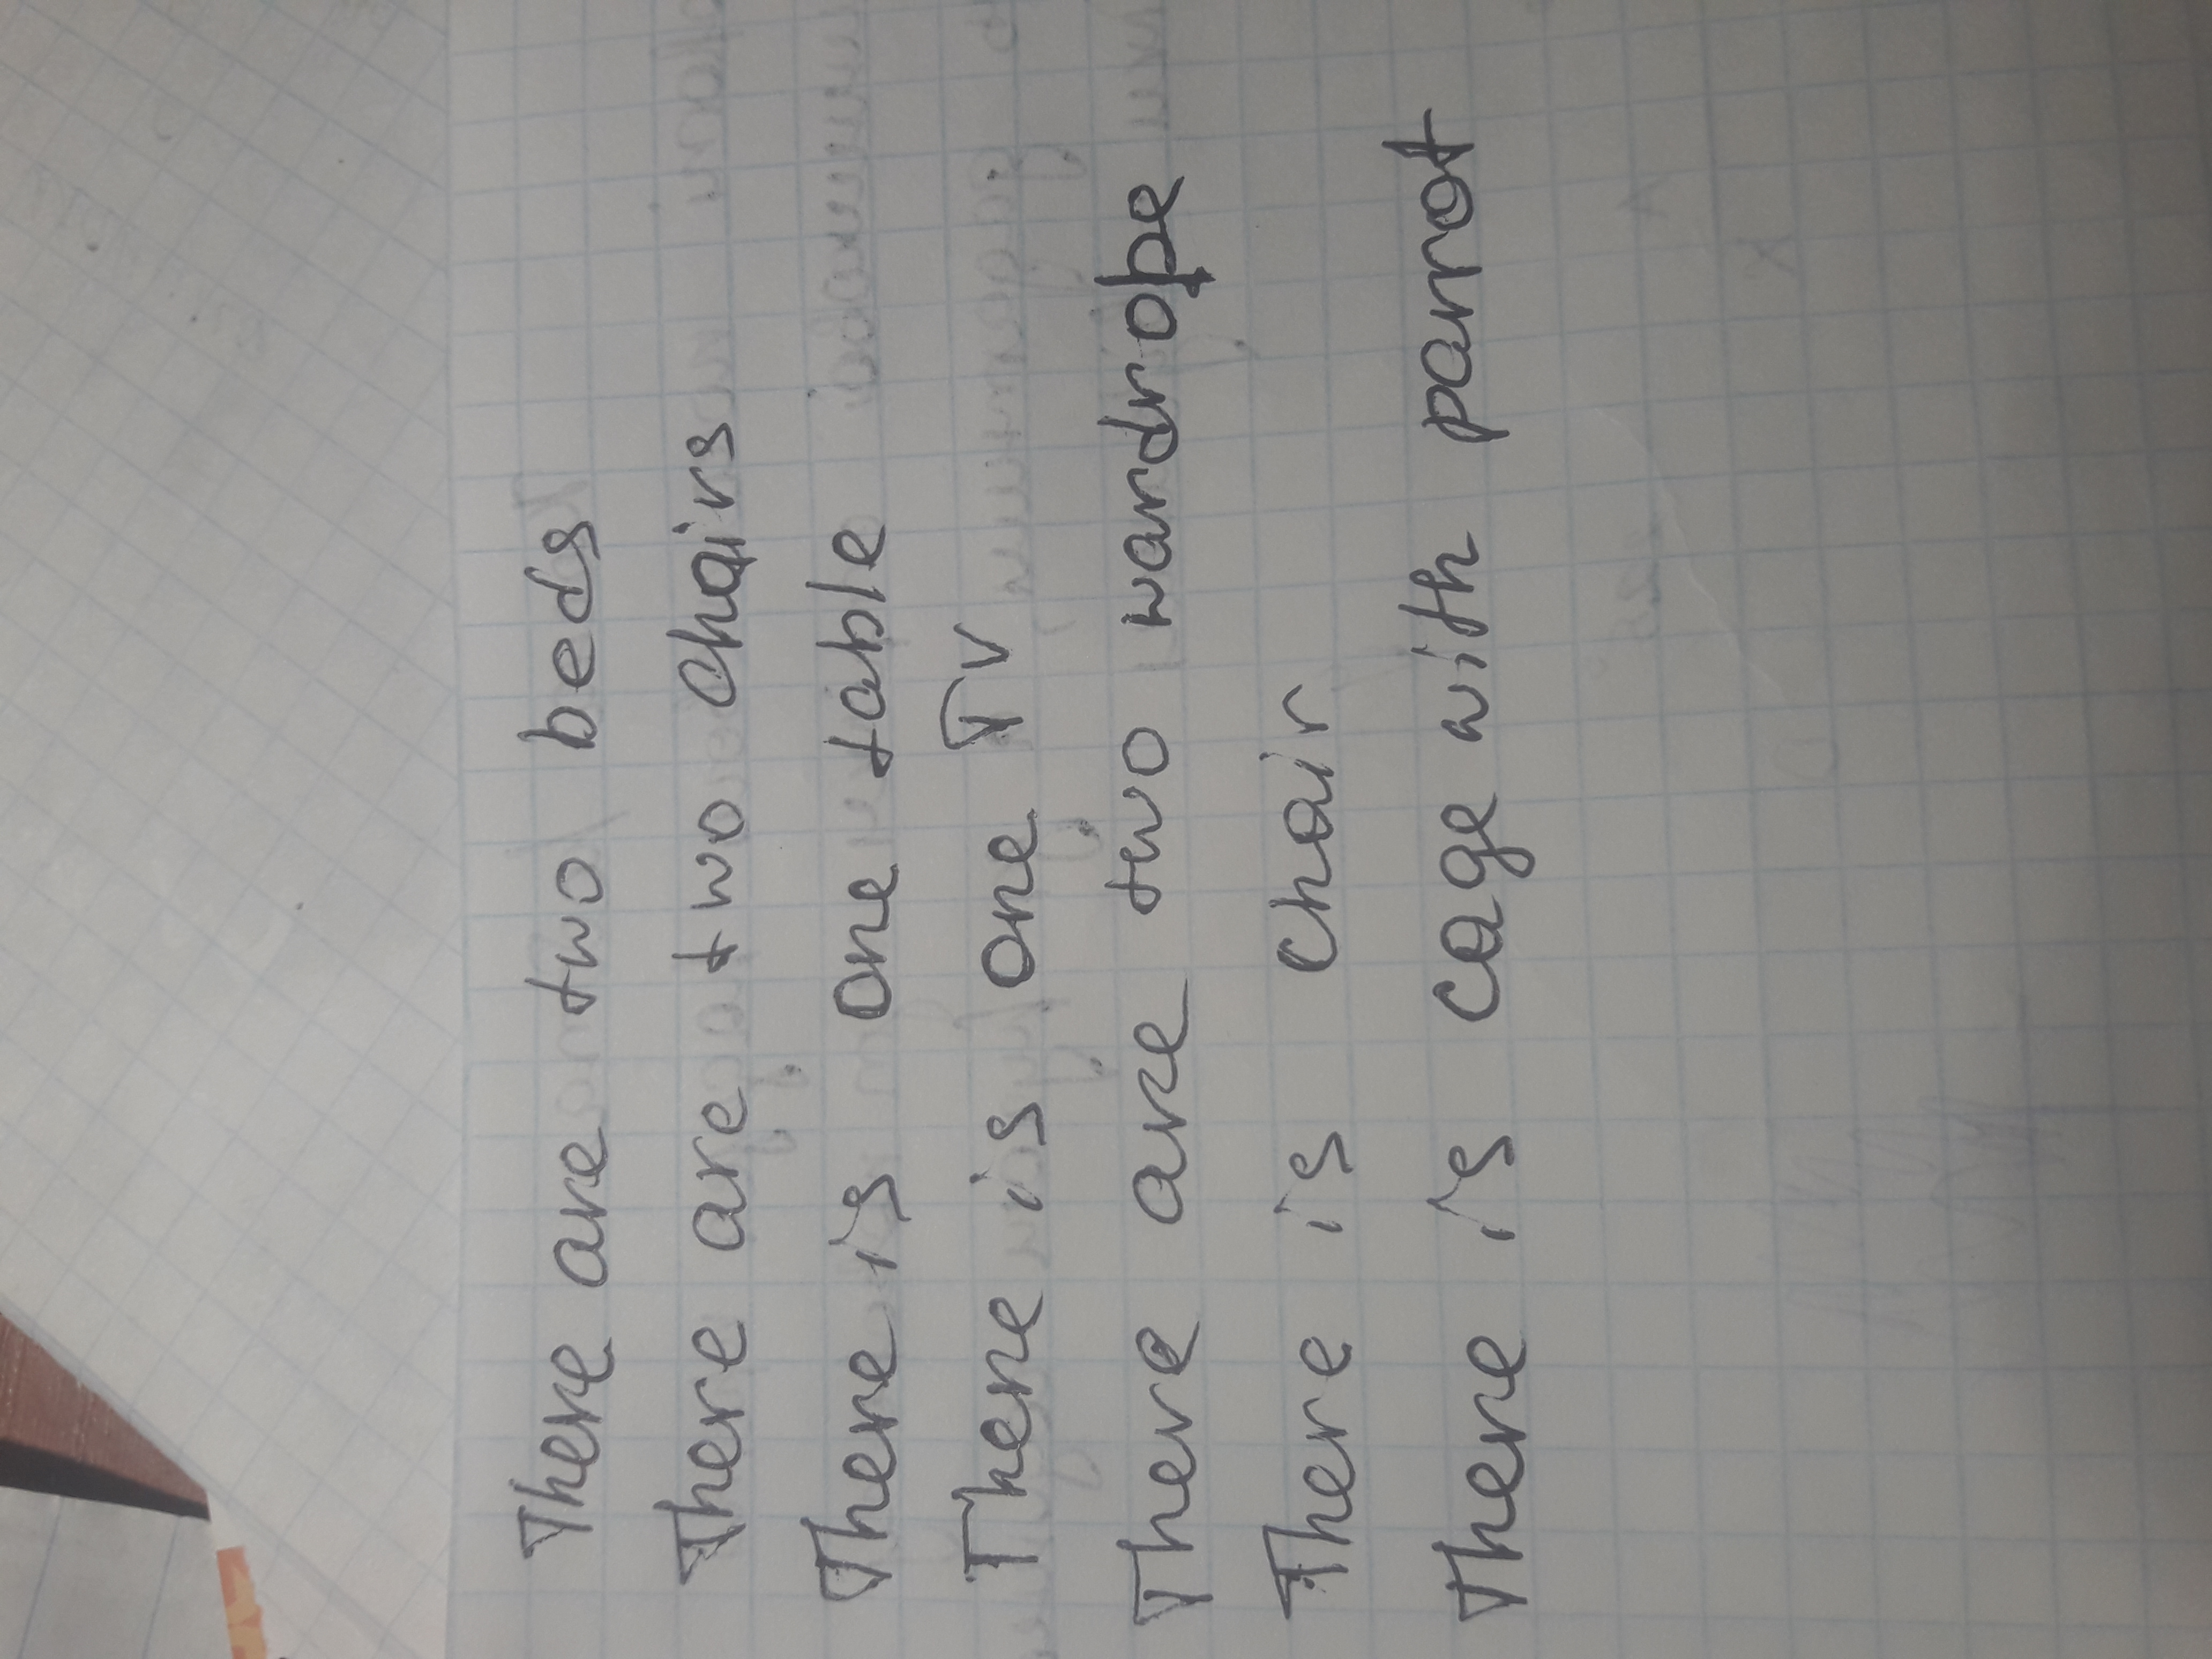 There are two beds
There are two chairs
There is one table
There is one TV
There are two wardrope
There is chair
There is cage with parrot